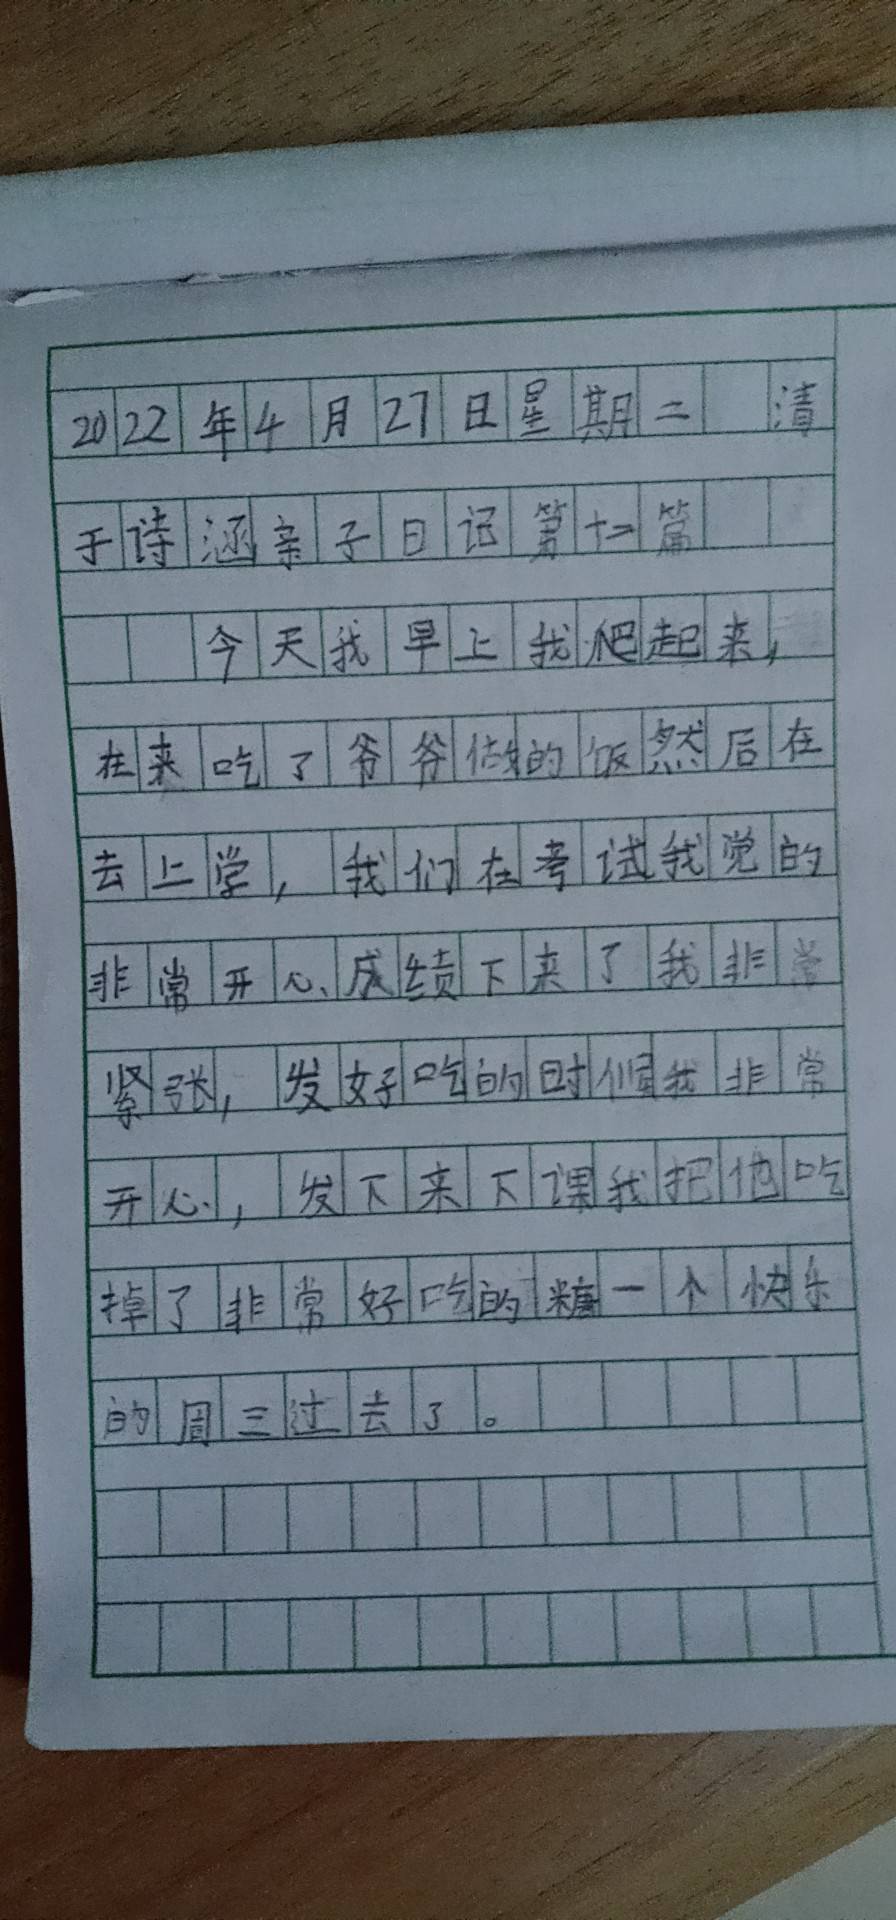 2022年4月27日星期二 清
于诗涵亲子日记第十二篇
今天我早上我爬起来,
在来吃了爷爷做的饭然后在
去上学,我们在考试我觉的
非常开心、成绩下来了我非常
紧张,发好吃的时候我非常
开心,发下来下课我把他吃
掉了非常好吃的糖一个快乐
的周三过去了。